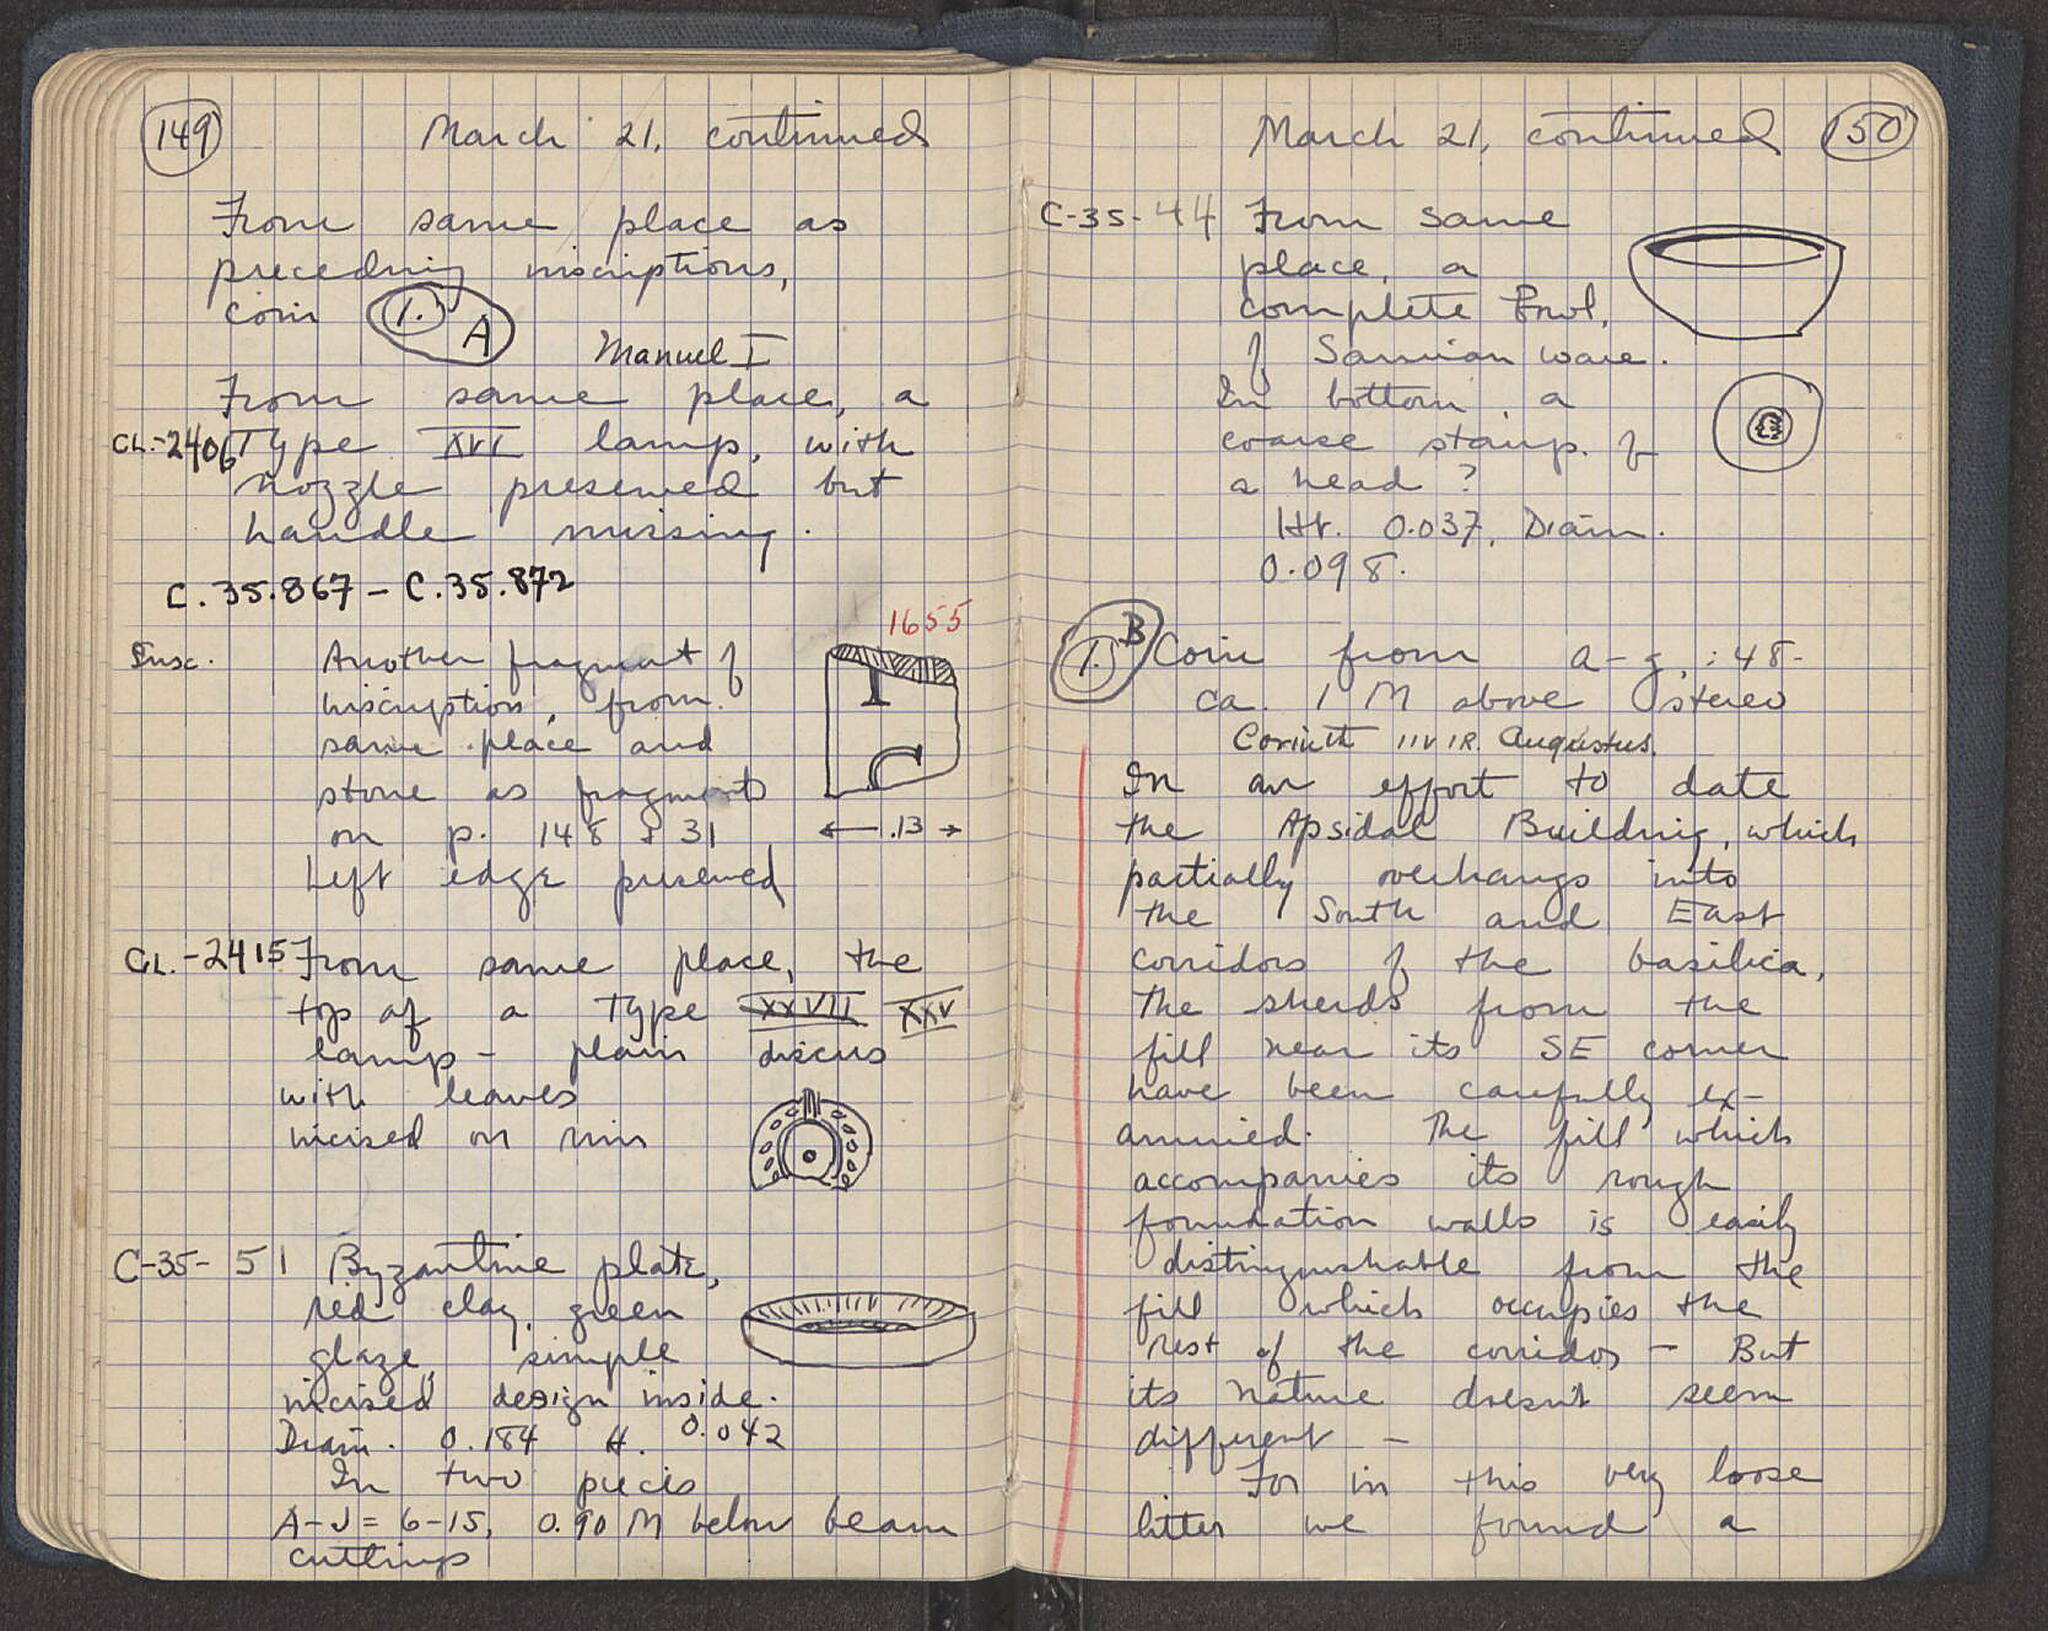 149
March 21, continued
From same place as
preceding inscriptions,
coin 1. A
Manuel I
From same place, a
CL.-2406 Type XVI lamp, with
nozzle preserved but
handle missing.
C.35.867 – C.35.872
1655
Insc. Another fragment of
inscription, from
same place and
stone as fragments
on p. 148 & 31
Left edge preserved
I
C
.13
CL.-2415 From same place, the
top of a Type XXVII XXV
lamp – plain discus
with leaves
incised on rim
C-35-51 Byzantine plate,
red clay, green
glaze, simple
incised design inside.
Diam. 0.184 H. 0.042
In two pieces
A-J = 6-15, 0.90 M below beam
cuttings
March 21, continued 150
C-35-44 From same
place, a
complete Bowl,
of Samian ware.
In bottom, a
coarse stamp of
a head?
Ht. 0.037, Diam.
0.098.
1. B Coin from a-g,:48-
ca. 1 M above stereo
Corinth IIVIR. Augustus.
In an effort to date
the Apsidal Building, which
partially overhangs into
the South and East
corridors of the basilica,
the sherds from the
fill near its SE corner
have been carefully ex-
amined. The fill which
accompanies its rough
foundation walls is easily
distinguishable from the
fill which occupies the
rest of the corridor – But
its nature doesn't seem
different –
For in this very loose
litter we found a